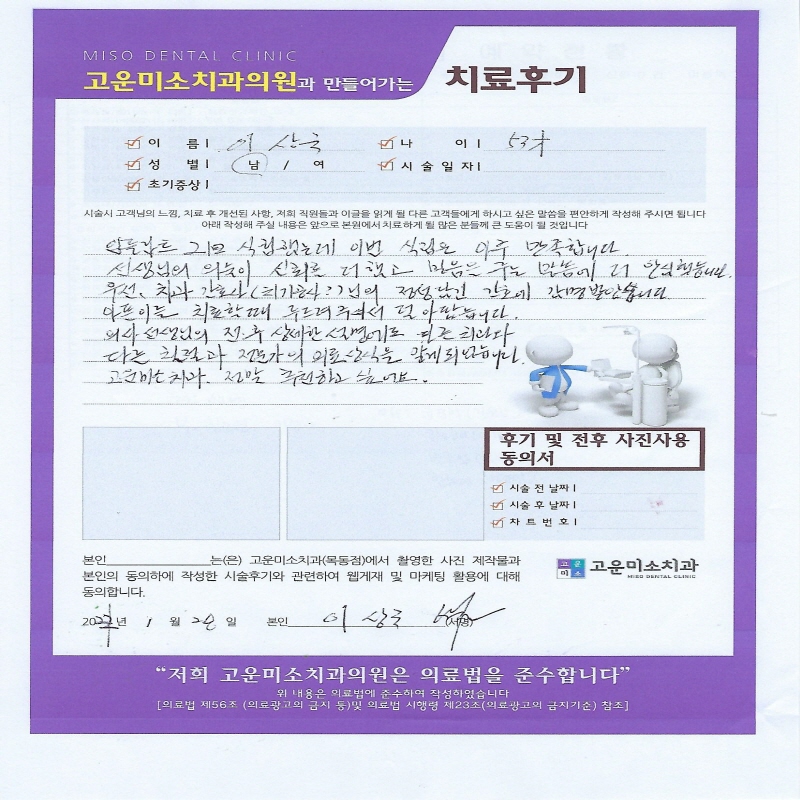 MISO DENTAL CLINIC
고운미소치과의원과 만들어가는 치료후기
이 름 이 상국 나 이 53才
성 별 남 / 여 시술일자
초기증상
시술시 고객님의 느낌, 치료 후 개선된 사항, 저희 직원들과 이글을 읽게 될 다른 고객들에게 하시고 싶은 말씀을 편안하게 작성해 주시면 됩니다
아래 작성해 주실 내용은 앞으로 본원에서 치료하게 될 많은 분들께 큰 도움이 될 것입니다
임플란트 식립했는데 이번 식립은 아주 만족합니다
선생님의 의술이 신뢰를 더 했고 믿음을 주는 말씀에 더 안심했습니다.
우선, 치과 간호사(치기공사?)님의 정성담긴 간호에 감명받았습니다
아프이를 치료할때 두드려주셔서 덜 아팠습니다.
의사 선생님의 전.후 상세한 설명에도 다른 치과와
다른 친절과 전문가의 의료상식을 알게되었습니다.
고운미소치과. 정말 추천하고 싶어요.
후기 및 전후 사진사용
동의서
시술 전 날짜
시술 후 날짜
차 트 번 호
본인 는(은) 고운미소치과(목동점)에서 촬영한 사진 제작물과
본인의 동의하에 작성한 시술후기와 관련하여 웹게재 및 마케팅 활용에 대해
동의합니다.
고운미소
고운미소치과
MISO DENTAL CLINIC
년 1 월 28 일 본인 이 상국 (서명)
“저희 고운미소치과의원은 의료법을 준수합니다”
위 내용은 의료법에 준수하여 작성하였습니다
[의료법 제56조 (의료광고의 금지 등)및 의료법 시행령 제23조(의료광고의 금지기준) 참조]